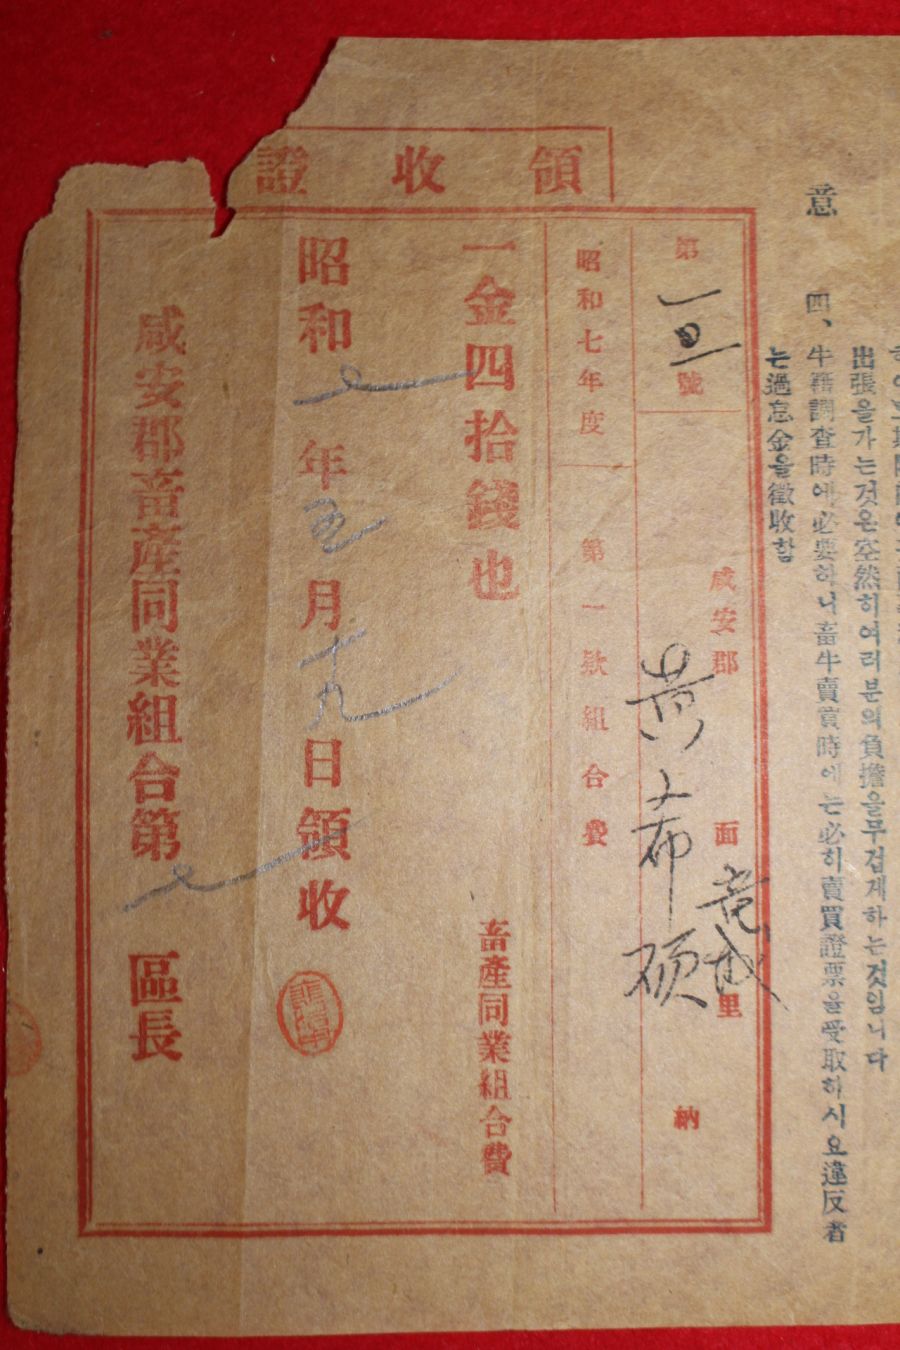 意
出張을가는것은空然히여러분의負擔을무겁게하는것임니다
四、牛籍調査時에必要하니畜牛賣買時에는必히賣買證票을受取하시요違反者
는過怠金을徵收함
領收證
第 號
咸安郡 面 里 納
黃 希 碩
昭和七年度 第一款組合費
一金四拾錢也
畜產同業組合費
昭和 七 年 五 月 十九 日領收
咸安郡畜產同業組合第 七 區長